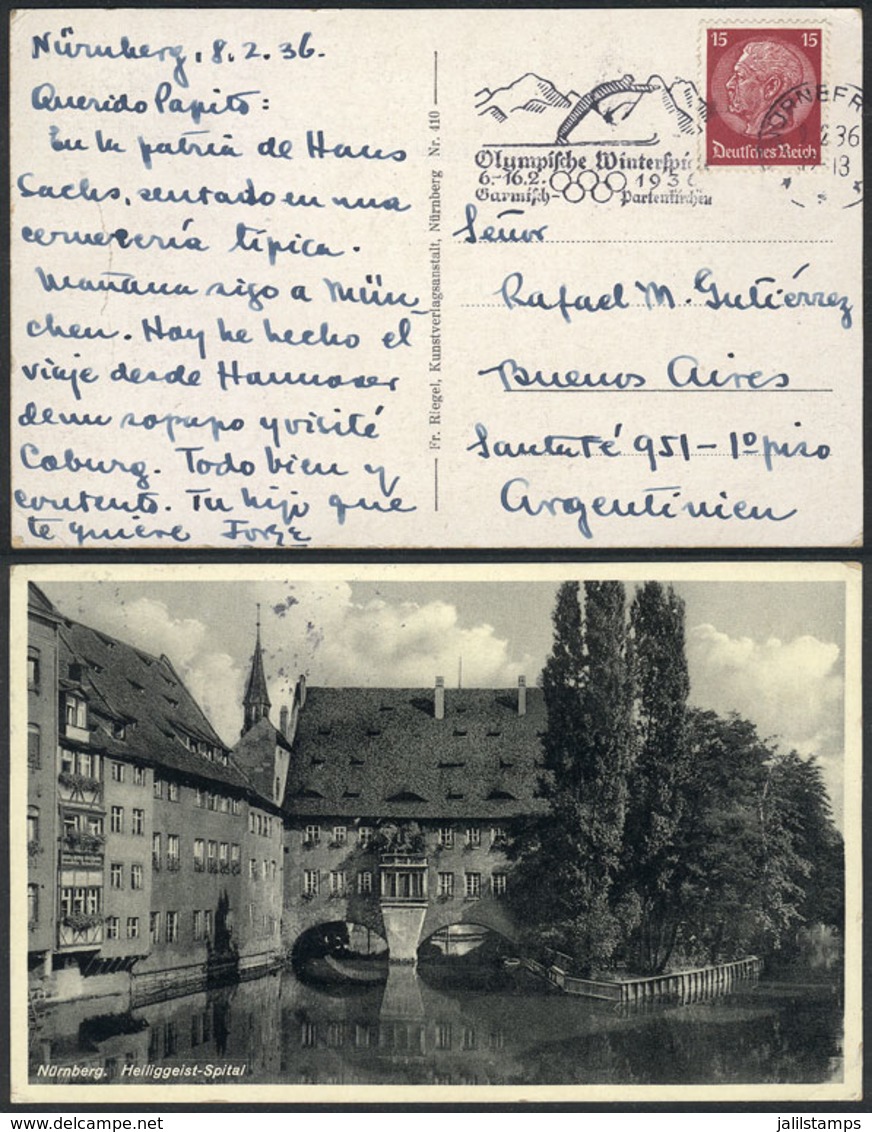 Nürnberg, 8.2.36.
Querido Papito:
En la patria de Hans
Sachs, sentado en una
cervecería típica.
Mañana sigo a Mün
chen. Hoy he hecho el
viaje desde Hannover
de un sopapo y visité
Coburg. Todo bien y
contento. Tu hijo que
te quiere Jorge
Fr. Riegel, Kunstverlagsanstalt, Nürnberg Nr. 410
15 15
Deutsches Reich
Olympische Winterspie
6.-16.2. 1936
Garmisch-Partenkirchen
36
13
Señor
Rafael M. Gutiérrez
Buenos Aires
951-1º piso
Argentinien
Nürnberg. Heiliggeist-Spital
jalilstamps